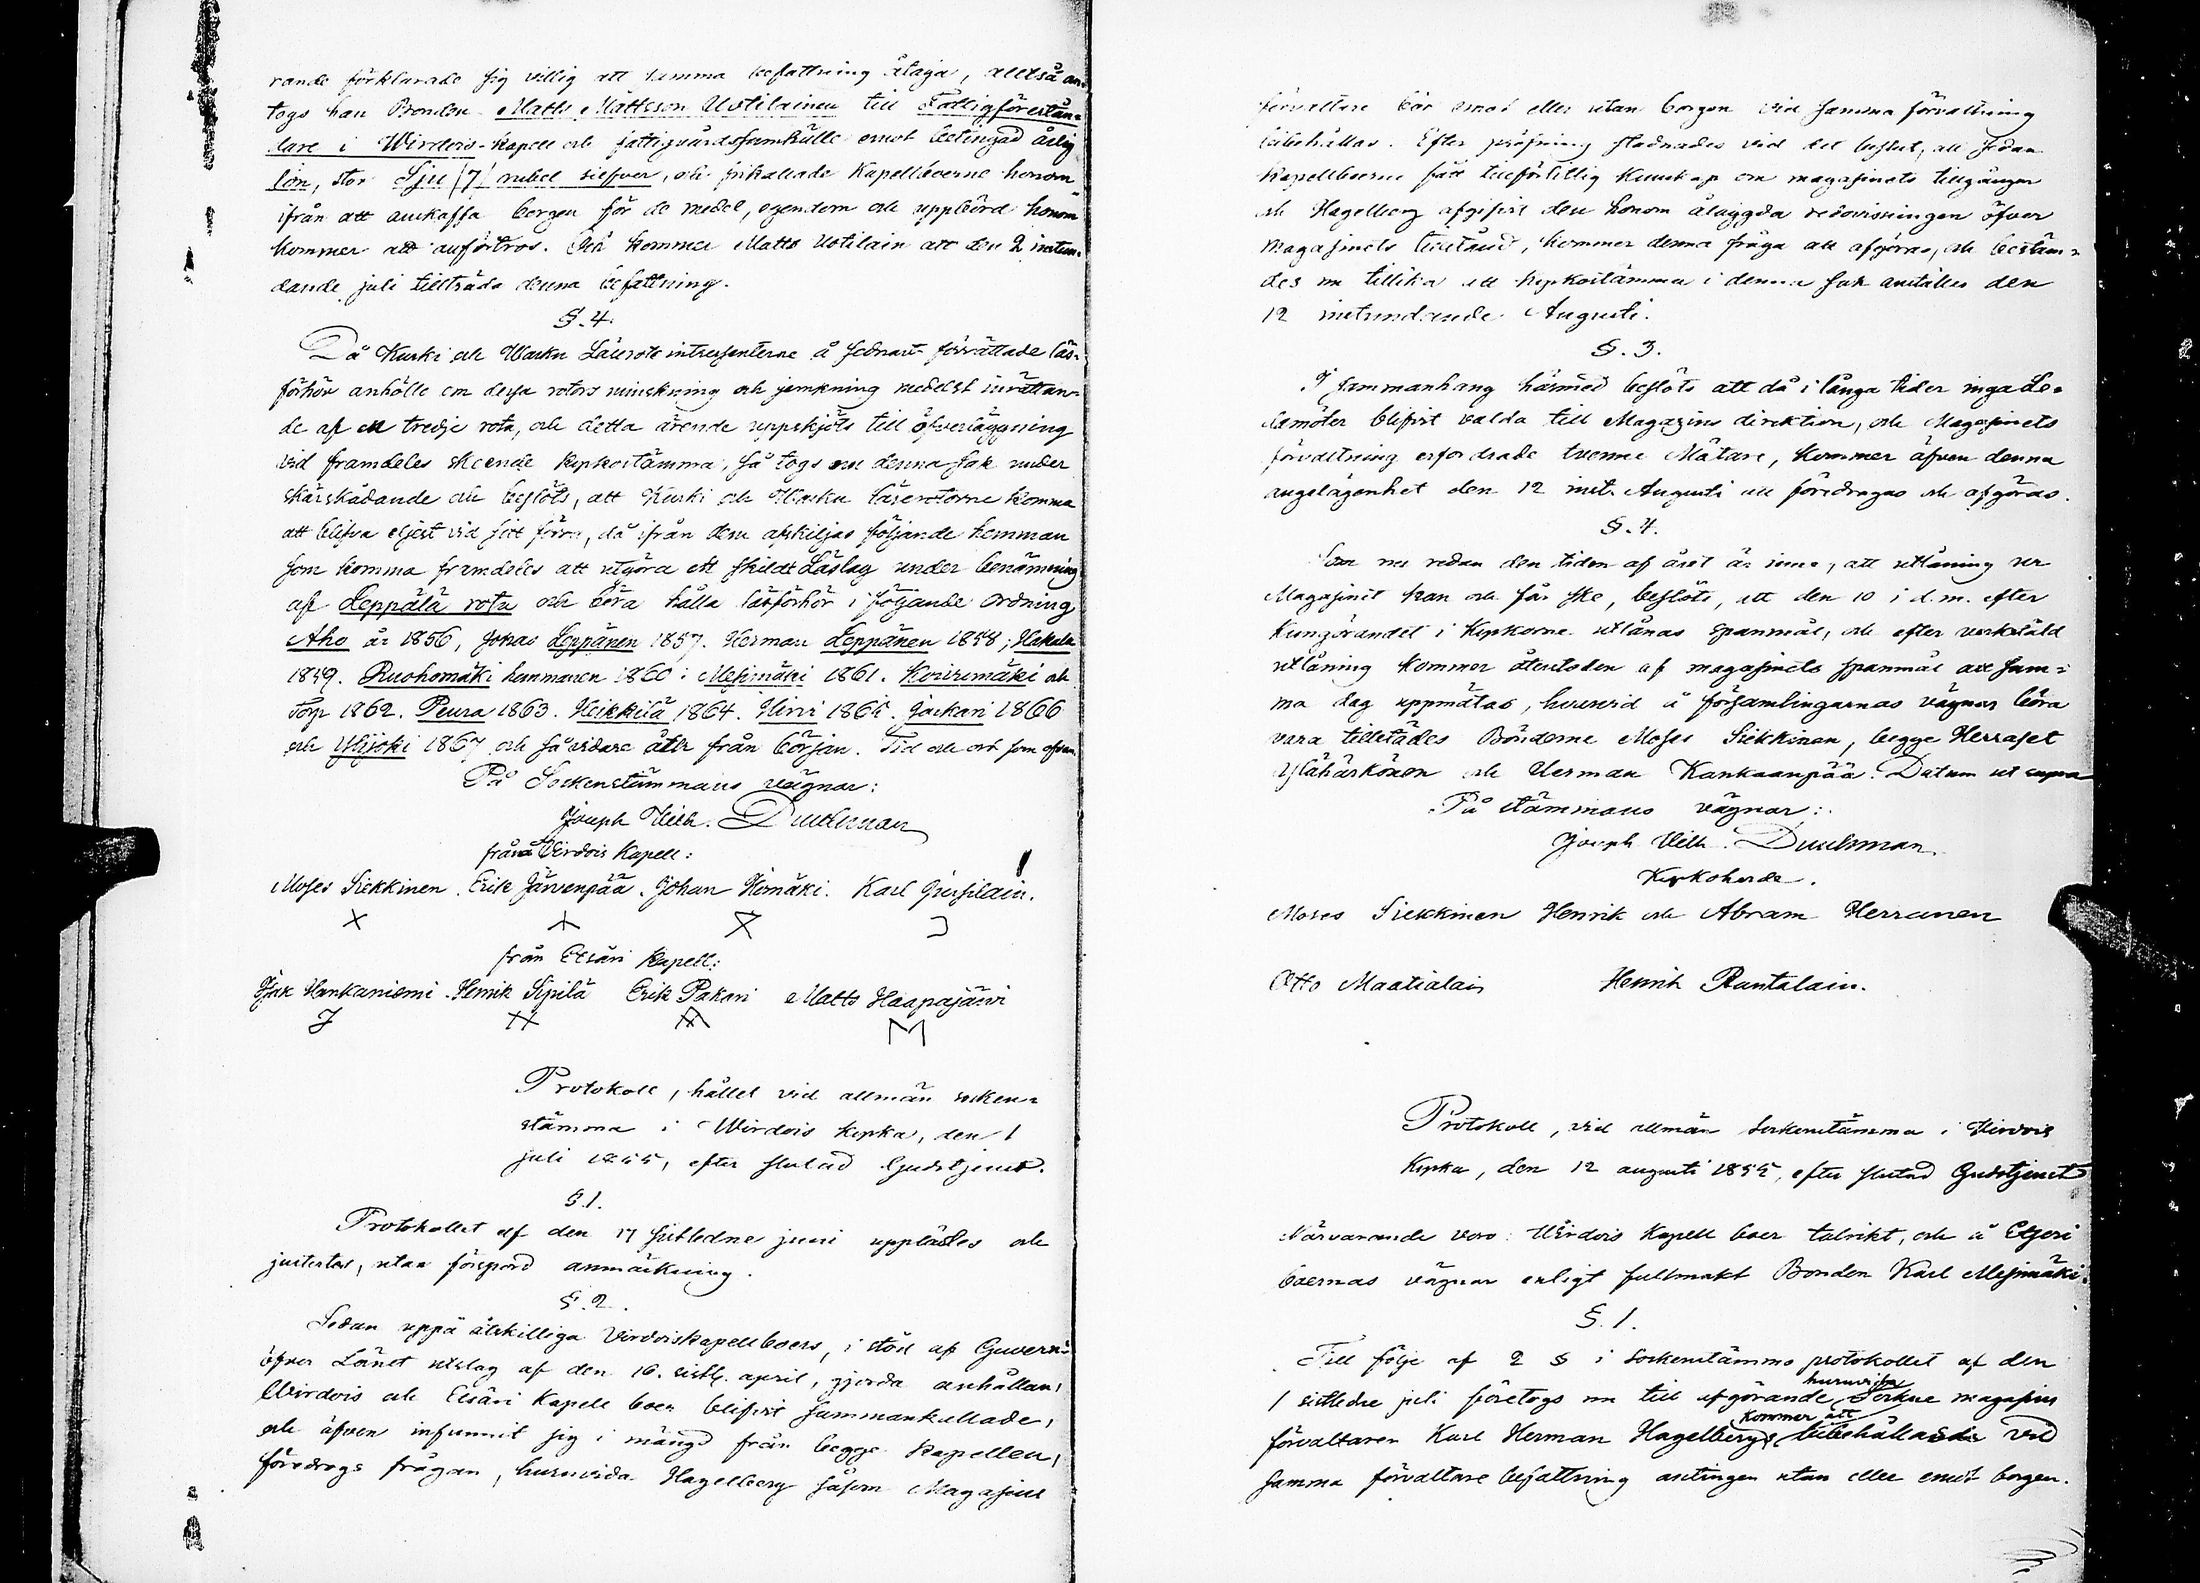 rande förklarade sig villig att samma befattning åtaga, alltså an-
togs han Bonden Matts Mattsson Uotilainen till Fattigförestån-
dare i Wirdois-Kapell och fattigvårdssamhälle emot betingad årlig
lön, stor Sju (7) rubel silfver, och frikallade Kapellboerne honom
ifrån att anskaffa borgen för de medel, egendom och uppbörd honom
kommer att anförtros. Och kommer Matts Uotilain att den 2 instun-
dande juli tillträda denna befattning.
§. 4.
Då Kurki och Wasku Läserote intressenterne å sednast förrättade läs-
förhör anhölle om dessa roters minskning och jemkning medelst inrättan-
de af en tredje rota, och detta ärende uppskjöts till öfverläggning
vid framdeles skeende kyrkostämma, så togs nu denna sak under
skärskådande och beslöts, att Kurki och Wasku läserotorne komma
att blifva eljest vid sitt förra, då ifrån dem afskiljas följande hemman
som komma framdeles att utgöra ett skildt Läslag under benämning
af Leppälä rota och böra hålla läsförhör i följande ordning
Aho år 1856, Jonas Leppänen 1857. Herman Leppänen 1858; Hakala
1859. Ruohomäki hemmanen 1860: Metsmäki 1861. Koivumäki och
Torp 1862. Peura 1863. Heikkilä 1864. Hirvi 1865. Jaskari 1866
och Ylijoki 1867 och så vidare åter från början. Tid och ort som ofvan
På Sockenstämmans vägnar:
Joseph Vilh. Durchman
från Virdois Kapell:
Moses Siekkinen. Erik Järvenpää. Johan Homäki. Karl
X
från Etsäri Kapell:
Isak Hankaniemi. Henrik Sipilä Erik Pakari Matts Haapajärvi
M
Protokoll, hållet vid allmän socken-
stämma i Wirdois kyrka, den 1
juli 1855, efter slutad Gudstjenst.
§ 1.
Protokollet af den 17 sistledne juni upplästes och
justerades, utan förspord anmärkning.
§. 2.
Sedan uppå åtskilliga Virdoiskapellboers, i stöd af Guvern:s
öfver Länet utslag af den 16. sistl. april, gjorda anhållan,
Wirdois och Etsäri Kapell boer blifvit sammankallade,
och äfven infunnit sig i mängd från begge kapellen,
föredrogs frågan, huruvida Hagelberg såsom Magasins
förvaltare bör emot eller utan borgen vid samma förvaltning
bibehållas. Efter pröfning stadnades vid det beslut, att sedan
kapellboerne fått tillförlitlig kunskap om magasinets tillgångar
och Hagelberg afgifvit den honom ålaggda redovisningen öfver
magasinets tillstånd, kommer denna fråga att afgöras, och bestäm-
des nu tillika att kyrkostämma i denna sak anställes den
12 instundande Augusti.
§. 3.
I sammanhang härmed beslöts att då i långa tider inga Le-
damöter blifvit valda till Magazins direktion, och Magasinets
förvaltning erfordrade tvenne Mätare, kommer äfven denna
angelägenhet den 12 inst. Augusti att föredragas och afgöras.
§. 4.
Som nu redan den tiden af året är inne, att utlåning ur
Magasinet kan och får ske, beslöts, att den 10 i d. m. efter
kungörandet i Kyrkorne utlånas spanmål, och efter verkstäld
utlåning kommer återstoden af magasinets spanmål att sam-
ma dag uppmätas, hvarvid å församlingarnas vägnar böra
vara tillstädes Bönderne Moses Siekkinen, begge Herraset
Ylähärkönen och Herman Kankaanpää. Datum ut supra
På stämmans vägnar:
Joseph Vilh. Durchman
Kyrkoherde.
Moses Siekkinen Henrik och Abram Herranen
Otto Maatialain Henrik Rantalain.
Protokoll, vid allmän Sockenstämma i Virdois
Kyrka, den 12 augusti 1855, efter slutad Gudstjenst
Närvarande voro: Wirdois Kapell boer talrikt, och å Etseri
boernas vägnar enligt fullmakt Bonden Karl Mesimäki.
§. 1.
Till följe af 2 § i Sockenstämmo protokollet af den
1 sistledne juli företogs nu till afgörande huruvida Socknе magasins
förvaltaren Karl Herman Hagelberg kommer att bibehållas vid
samma förvaltare befattning antingen utan eller emot borgen.